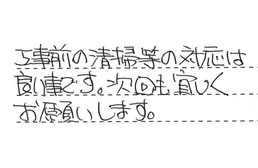 工事前の清掃等の対応は
良い事です。次回も宜しく
お願いします。